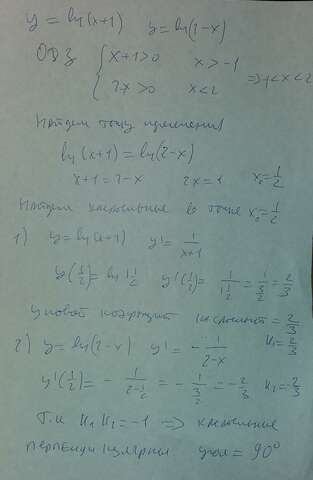 y = ln(x+1) y = ln(2-x)
ОДЗ { x+1>0 x>-1
2-x>0 x<2 => -1<x<2
Найдем точку пересечения
ln(x+1) = ln(2-x)
x+1 = 2-x 2x=1 x₀=1/2
Найдем касательные в точке x₀=1/2
1) y = ln(x+1) y' = 1/(x+1)
y(1/2) = ln 1 1/2 y'(1/2) = 1/(1 1/2) = 1/(3/2) = 2/3
угловой коэффициент касательной = 2/3
2) y = ln(2-x) y' = - 1/(2-x) k₁ = 2/3
y'(1/2) = - 1/(2-1/2) = - 1/(3/2) = -2/3 k₂ = -2/3
Т.к k₁ k₂ = -1 => касательные
перпендикулярны угол = 90°